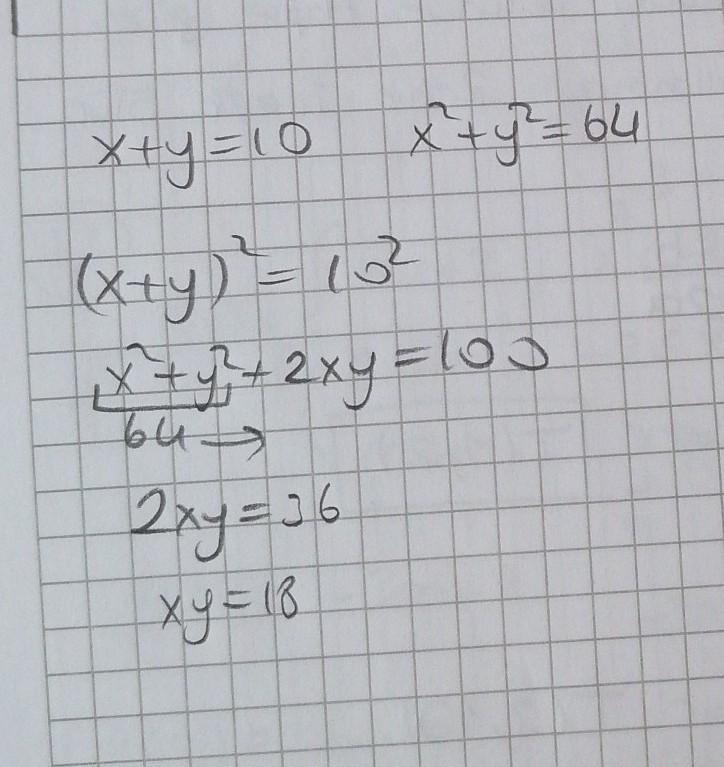 x+y=10 x²+y²=64
(x+y)²=10²
x²+y²+2xy=100
64→
2xy=36
xy=18